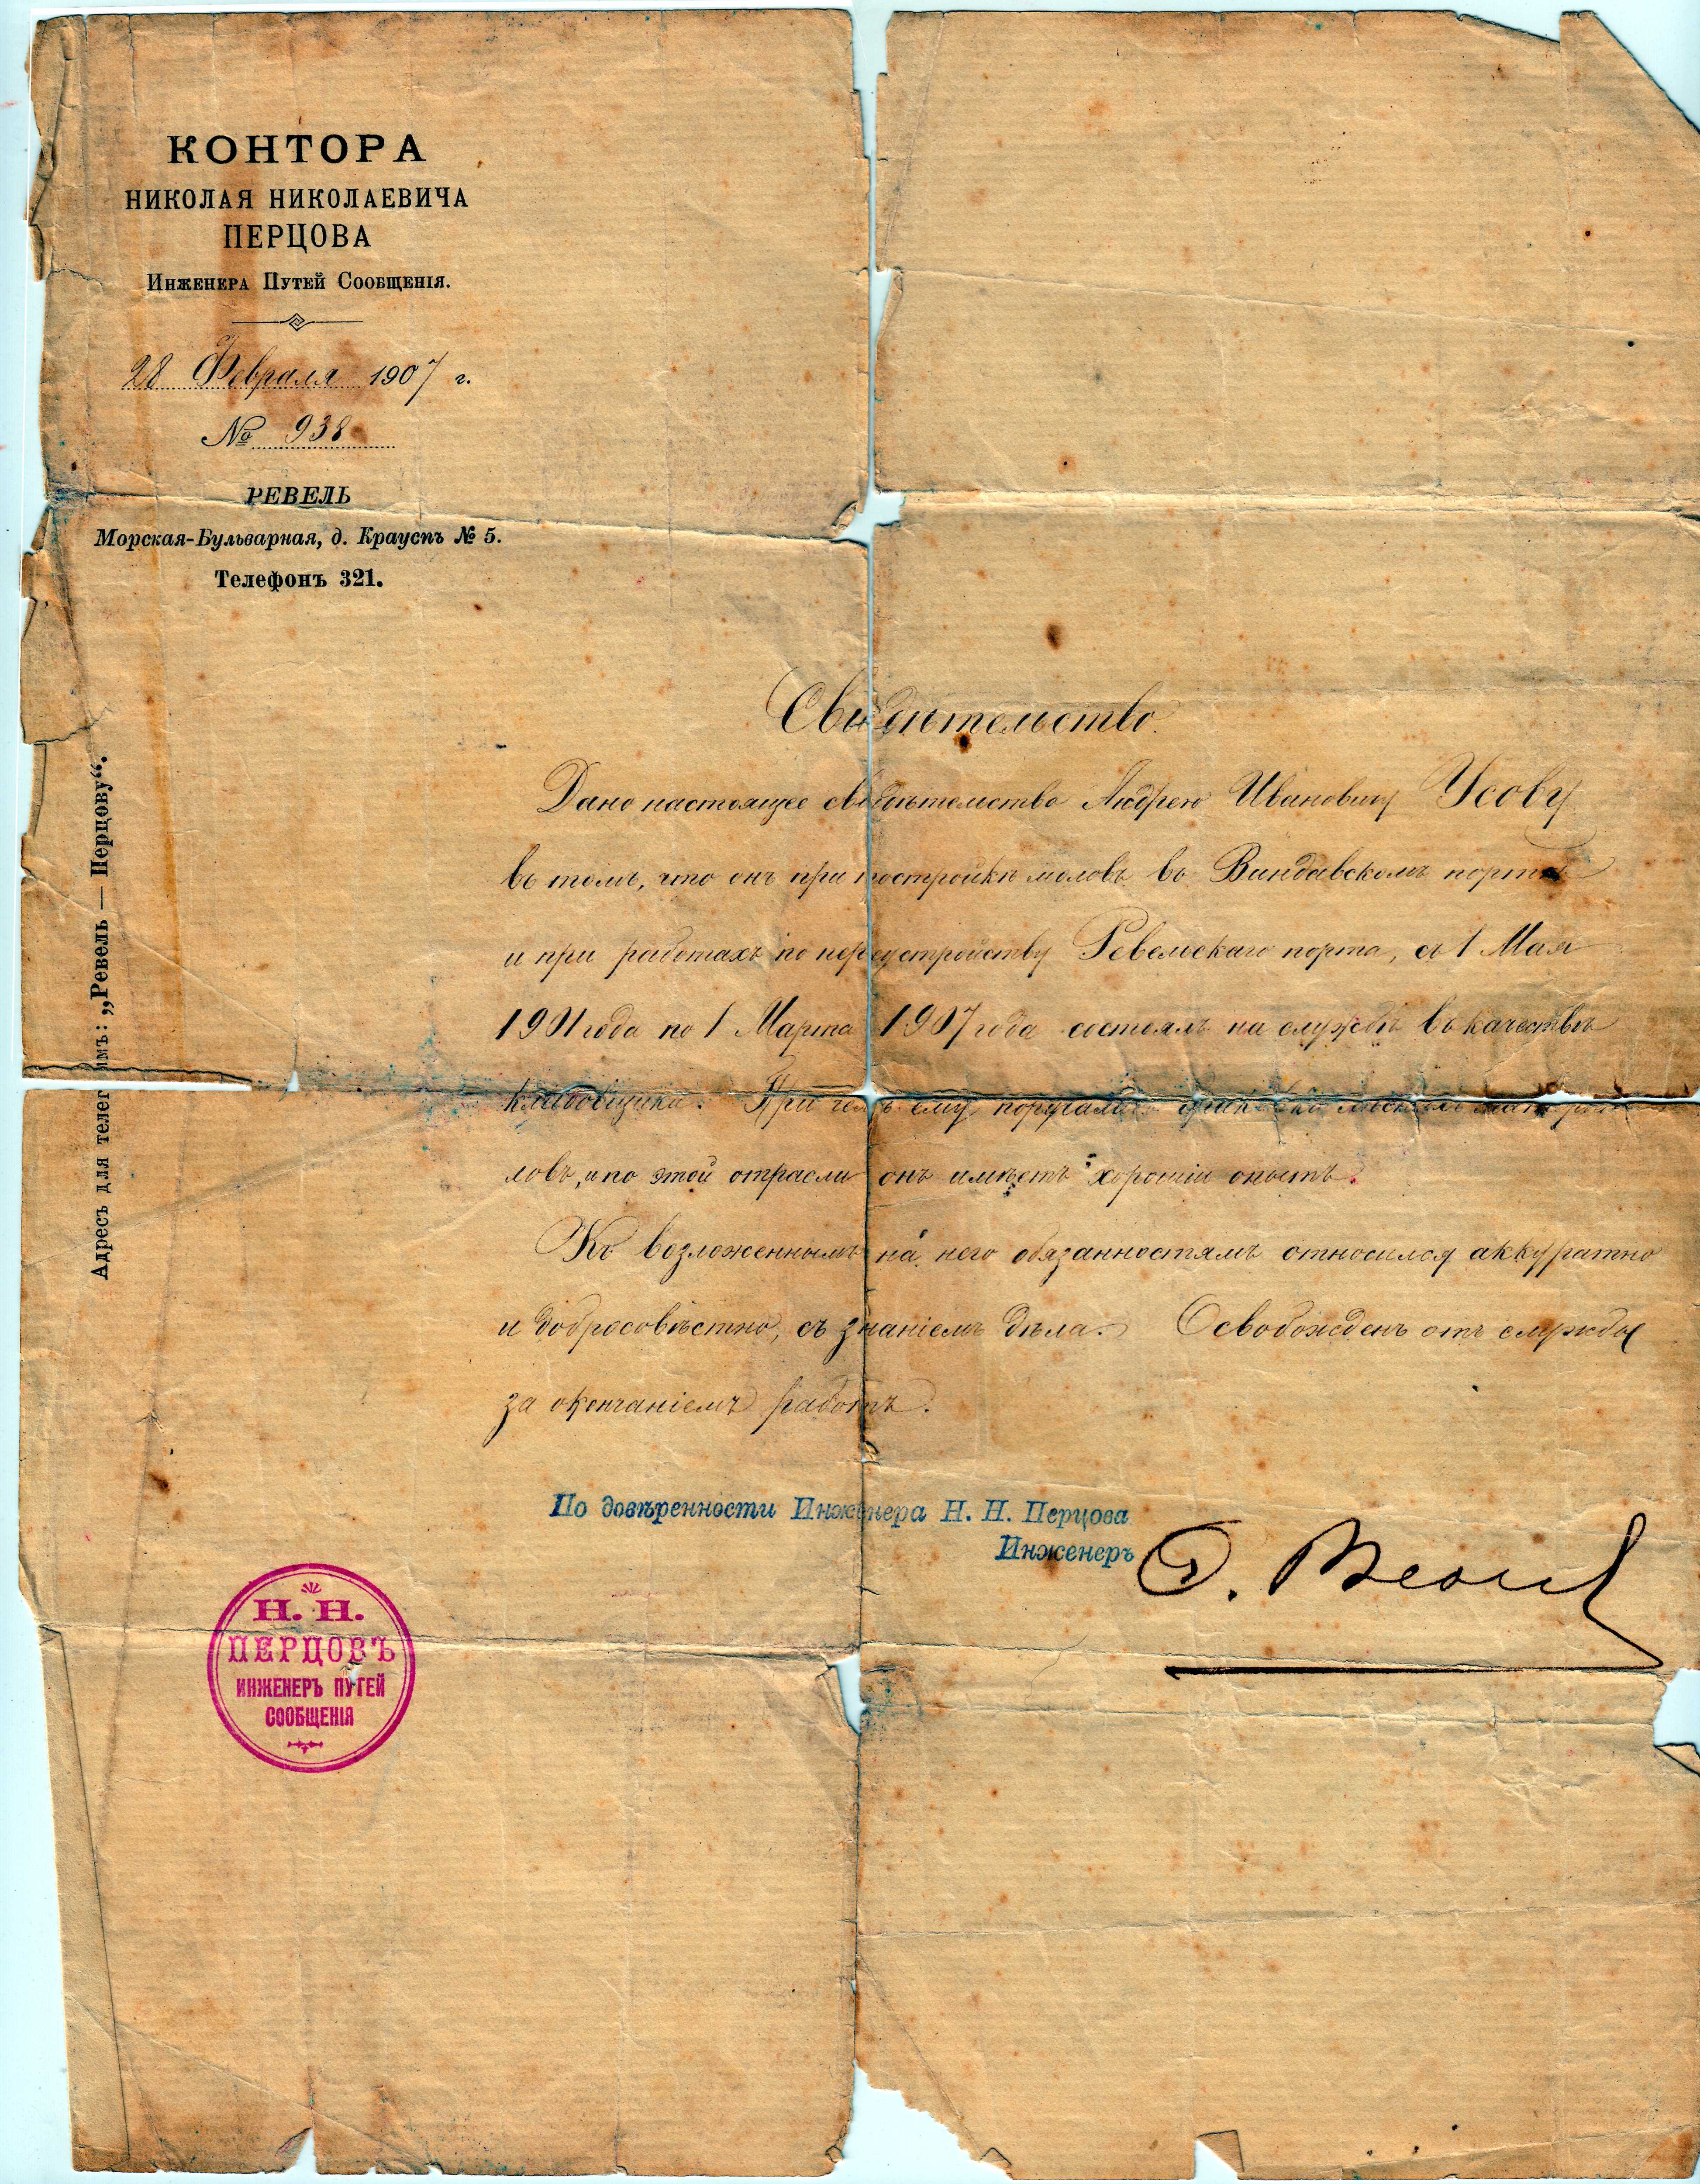 КОНТОРА
НИКОЛАЯ НИКОЛАЕВИЧА
ПЕРЦОВА
Инженера Путей Сообщенія.
28 Февраля 1907 г.
№ 938
РЕВЕЛЬ
Морская-Бульварная, д. Крауспъ № 5.
Телефонъ 321.
Адресъ для телег имъ: „Ревель — Перцову“.
Свидѣтельство.
Дано настоящее свидѣтельство Андрею Ивановичу Усову
въ томъ, что онъ при постройкѣ моловъ въ Виндавскомъ портѣ
и при работахъ по переустройству Ревельскаго порта, съ 1 Мая
1901 года по 1 Марта 1907 года состоялъ на службѣ въ качествѣ
кладовщика. При чемъ ему
ловъ, и по этой отрасли онъ имѣетъ хорошій опытъ.
Къ возложеннымъ на него обязанностямъ относился аккуратно
и добросовѣстно, съ знаніемъ дѣла. Освобожденъ отъ службы
за окончаніемъ работъ.
По довѣренности Инженера Н. Н. Перцова
Инженеръ
Н. Н.
ПЕРЦОВЪ
ИНЖЕНЕРЪ ПУТЕЙ
СООБЩЕНІЯ